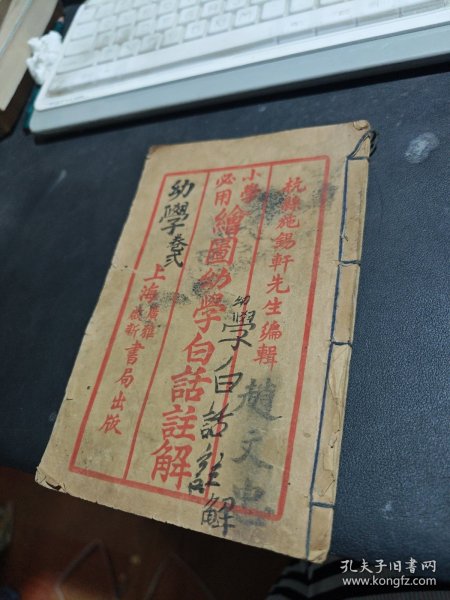 杭縣施錫軒先生編輯
小學
必用
繪圖幼學白話註解
上海
書局出版
幼學卷弍
幼學白話註解
趙文忠
孔夫子旧书网
www.kongfz.com